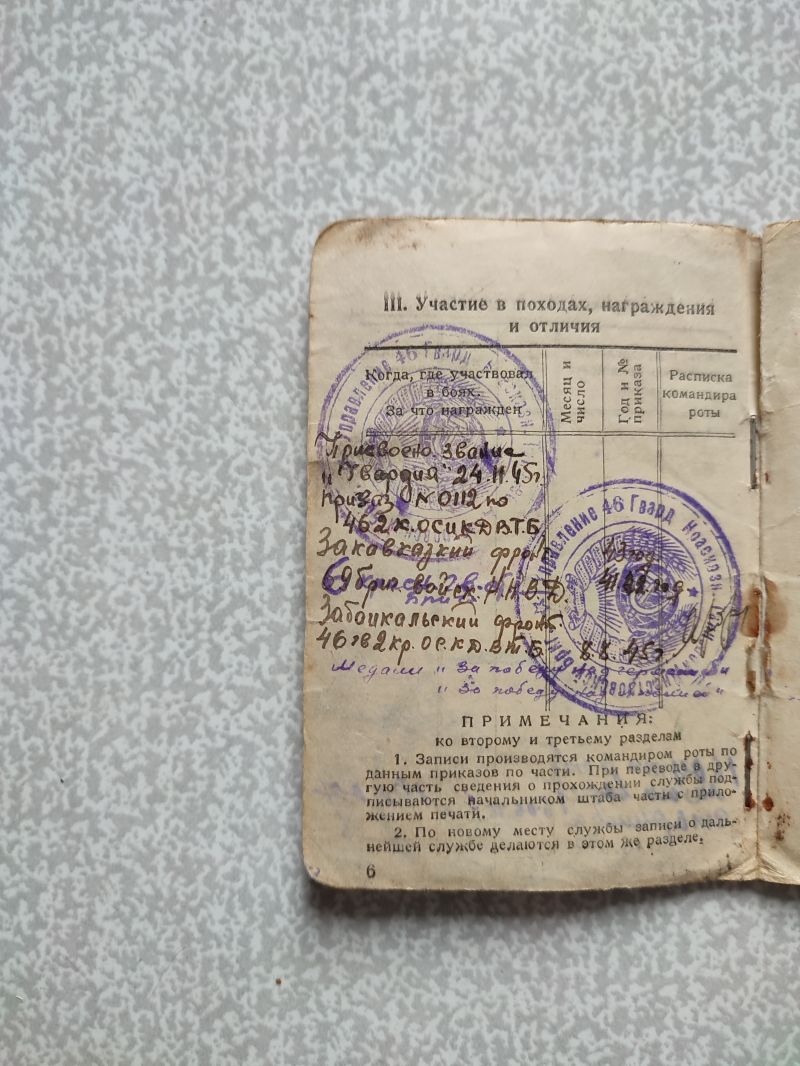 III. Участие в походах, награждения
и отличия
Когда, где участвовал
в боях.
За что награжден
Месяц и
число
Год и №
приказа
Расписка
командира
роты
Управление 46 Гвард Краснозн
Присвоено звание
"Гвардия" 24.11.45г.
N 0112 по
46 2 К.О С и К Д В.Т.Б
Закавказкий фронт 43 год
войск Н.В.Д.
Забоикальский фронт
46 гв 2 кр. О С. К Д. В. Т. Б. 8.8.45г
Управление 46 Гвард Краснозн
Медали "За победу над германией
"За победу над"
ПРИМЕЧАНИЯ:
ко второму и третьему разделам
1. Записи производятся командиром роты по
данным приказов по части. При переводе в дру-
гую часть сведения о прохождении службы под-
писываются начальником штаба части с прило-
жением печати.
2. По новому месту службы записи о даль-
нейшей службе делаются в этом же разделе.
6